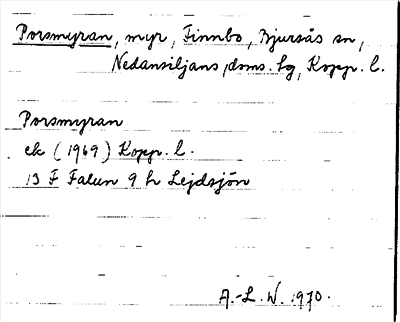 Porsmyran, myr, Finnbo, Bjursås sn,
Nedansiljans doms. tg, Kopp. l.
Porsmyran
ek (1969) Kopp. l.
13 F Falun 9 h Lejdsjön
A.-L. W. 1970.